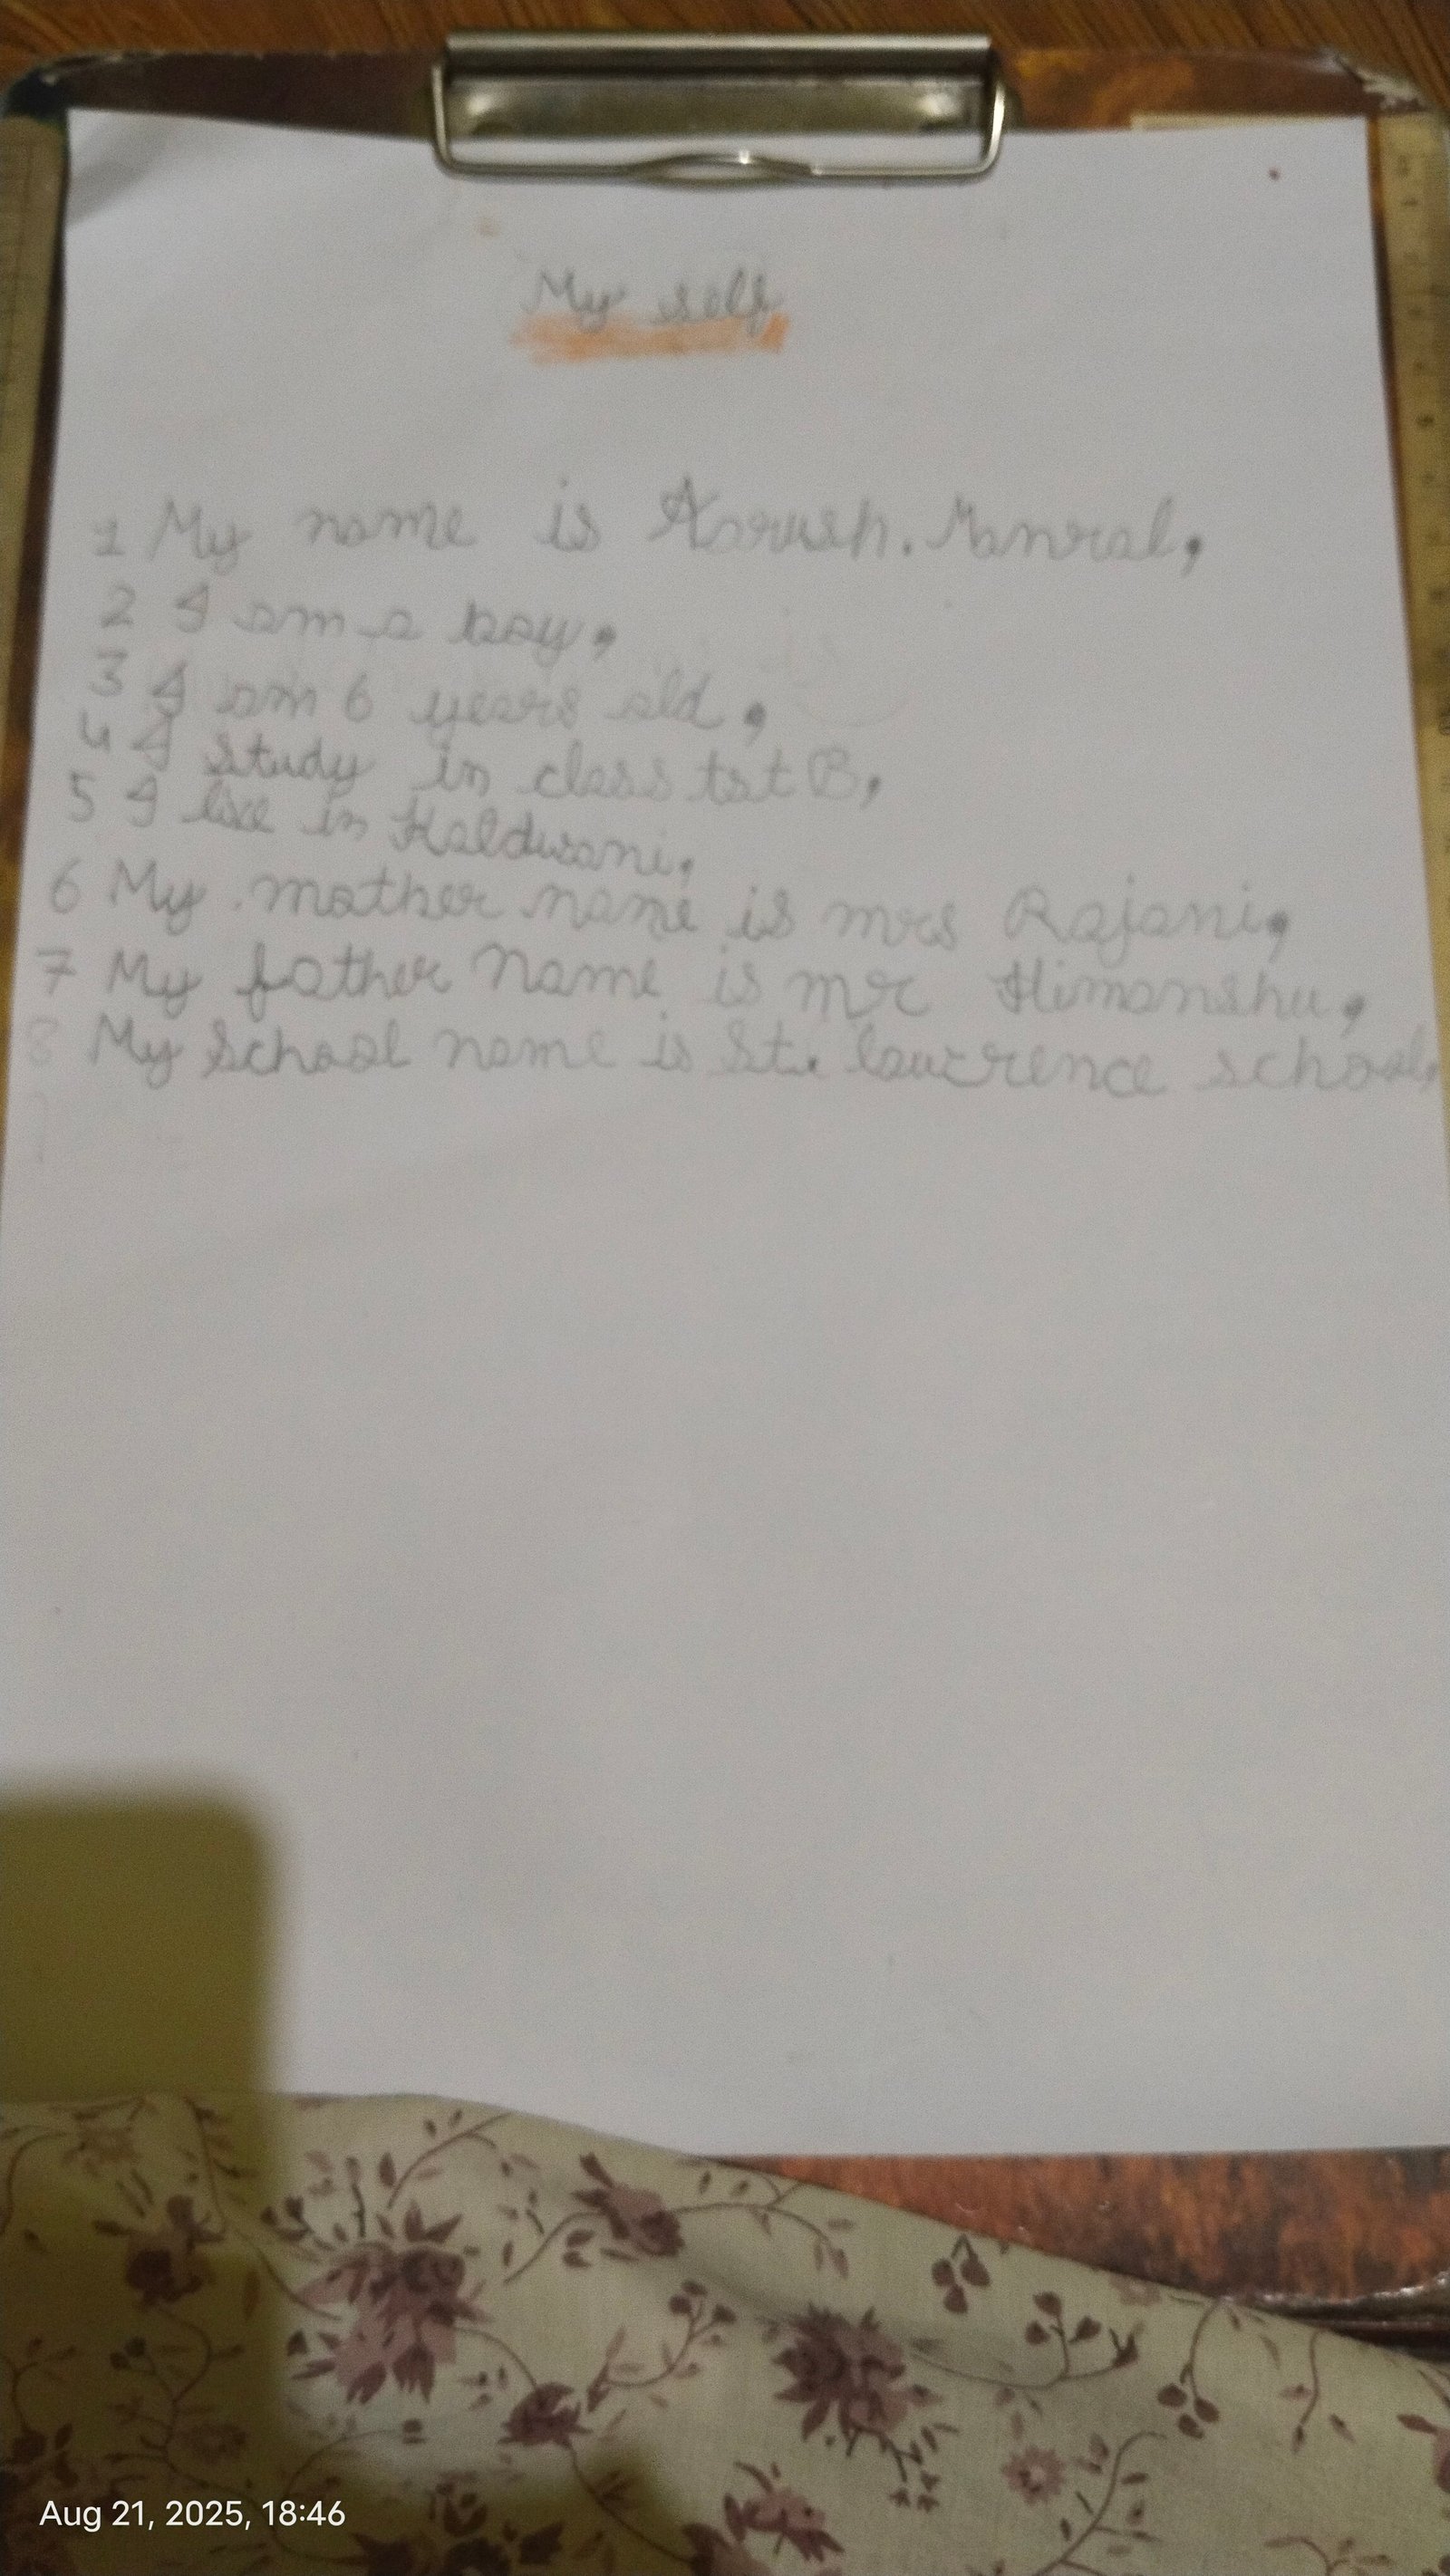 My self
1 My name is Aarush. Manral,
2 I am a boy,
3 I am 6 years old,
4 I study in class tst B,
5 I live in Haldwani,
6 My mother name is mrs Rajani,
7 My father name is mr Himanshu,
8 My school name is St. lawrence school,
Aug 21, 2025, 18:46